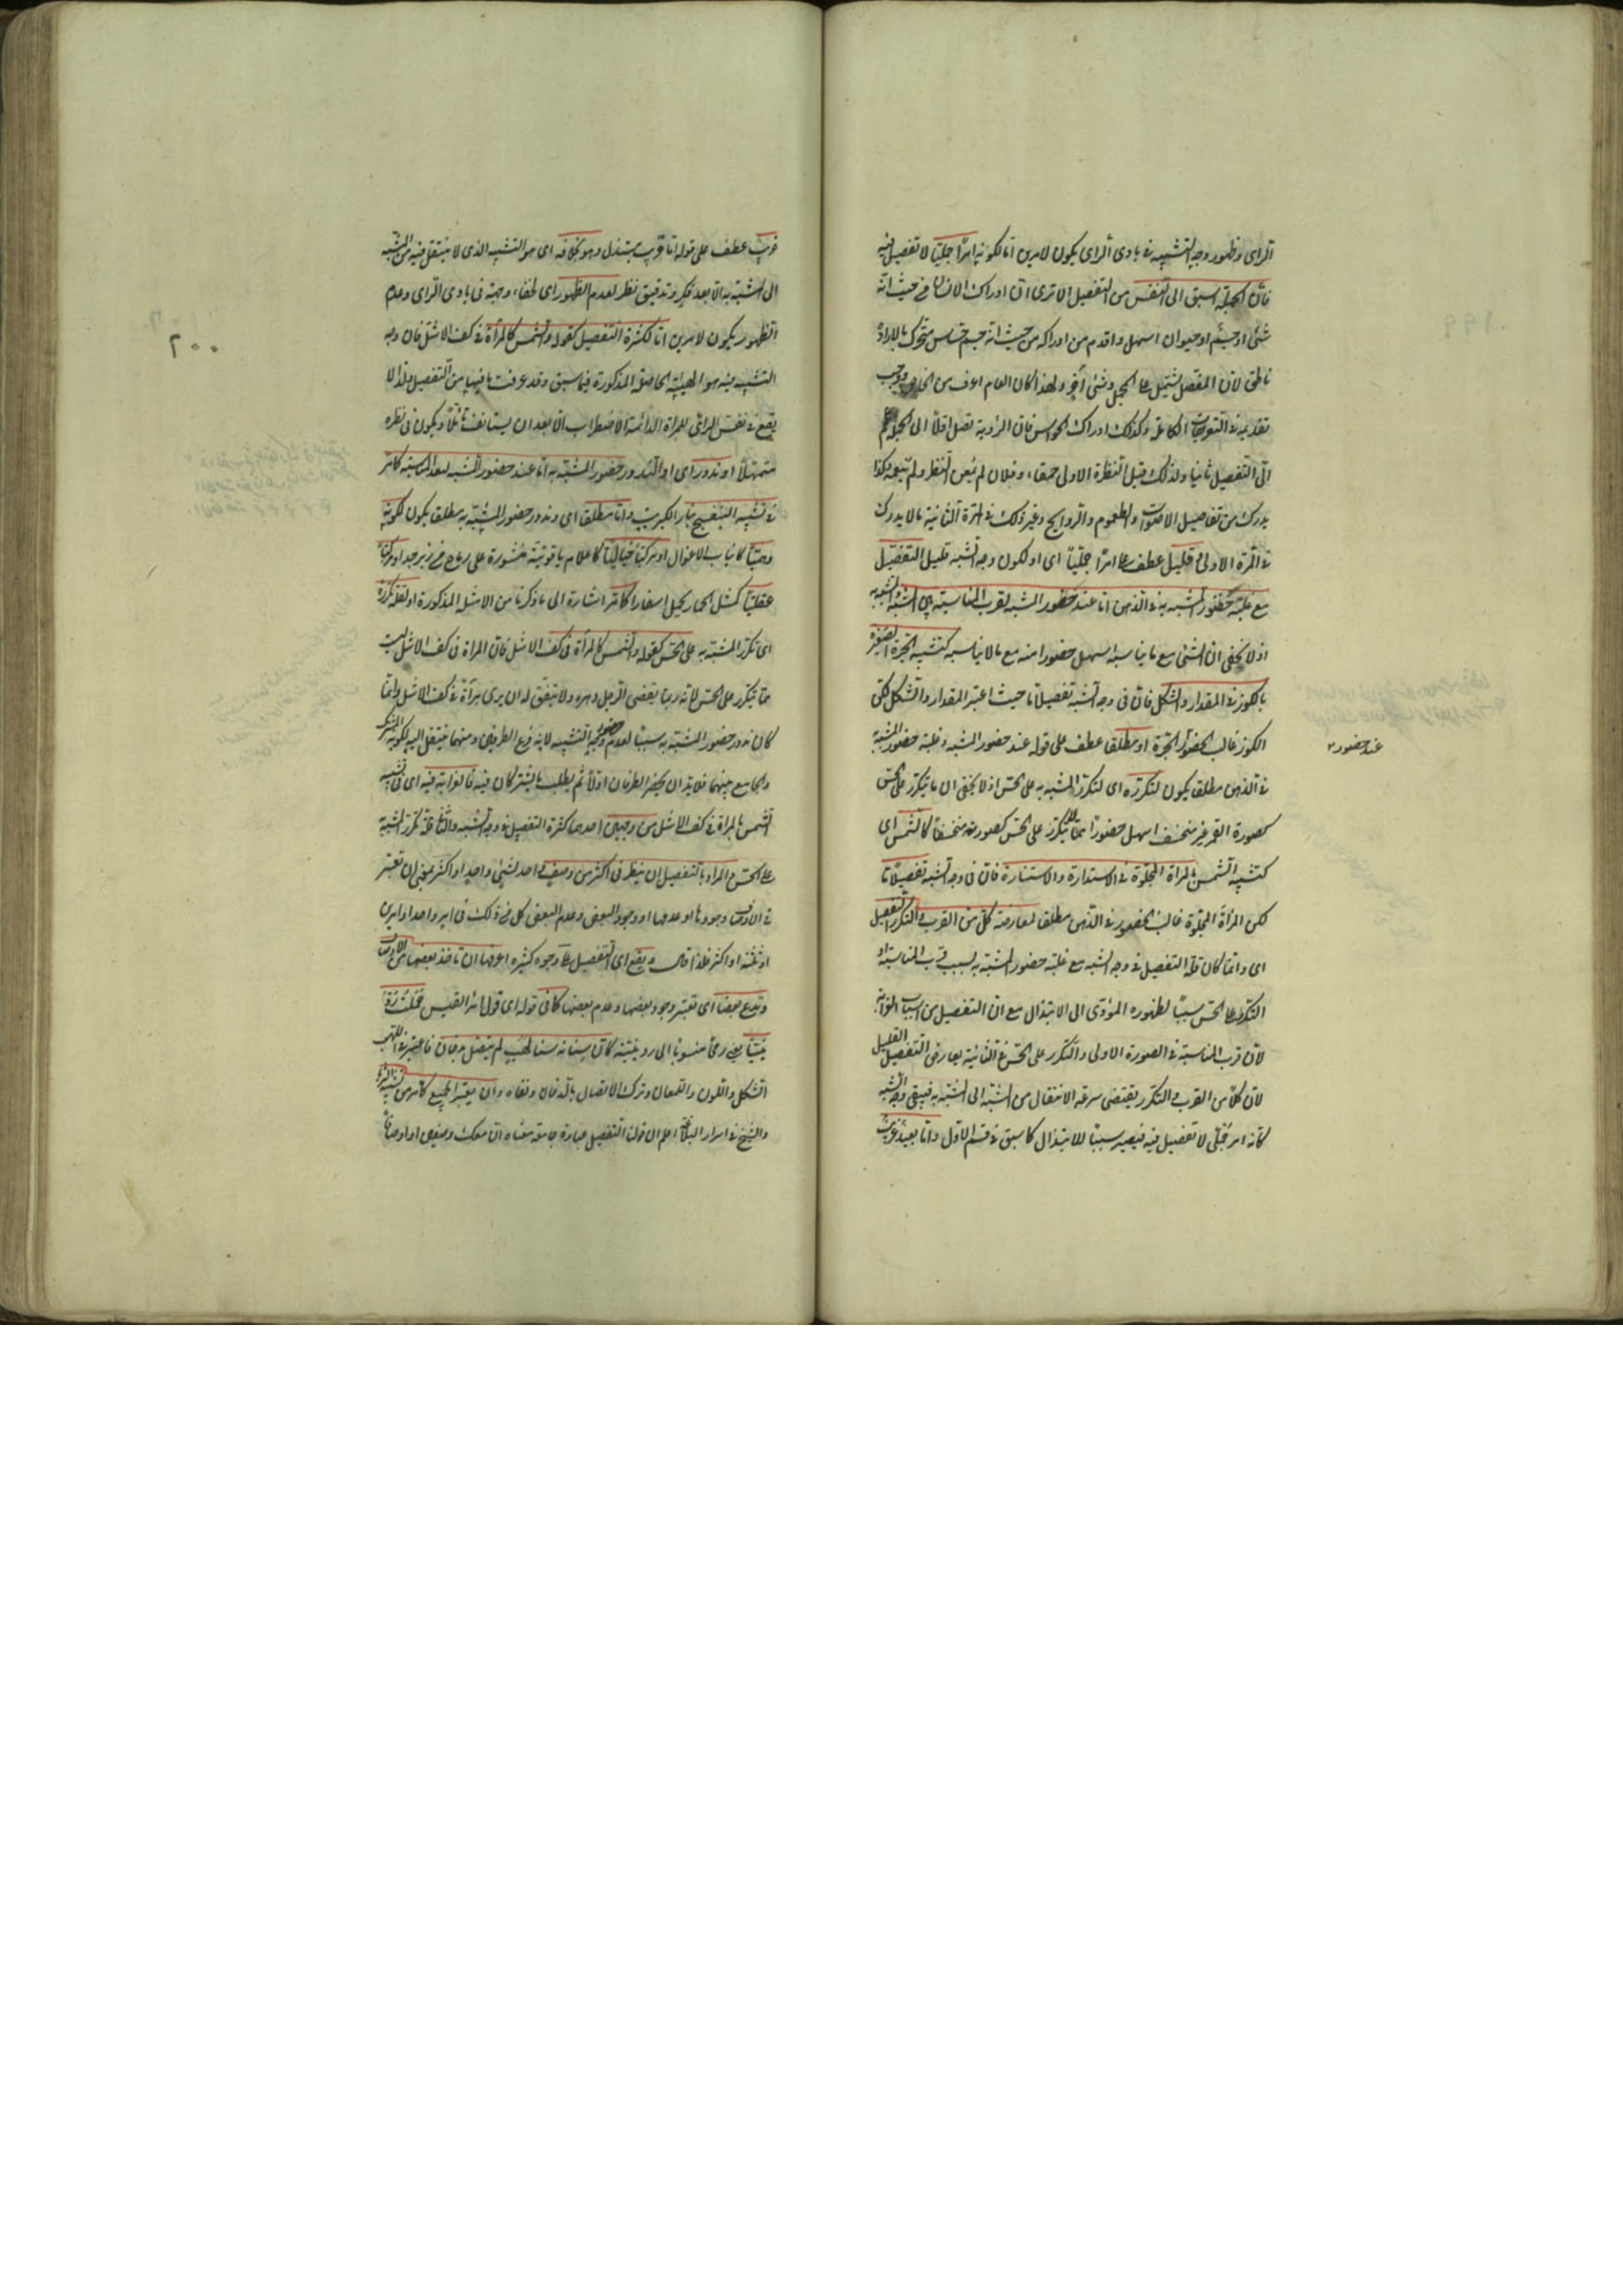 الرأى وظهور وجه التشبيه فى بادى الرأى يكون لامرين اما لكونه امرًا جمليًّا لا تفصيل فيه
فان الجملة اسبق الى النفس من التفصيل الا ترى ان ادراك الانسان من حيث انه
شئ او جسم او حيوان اسهل واقدم من ادراكه من حيث انه جسم حساس متحرك بالارادة
ناطق لان المفصل يشتمل على المجمل وشئ آخر ولهذا كان العام اعرف من الخاص ووجب
تقديمه فى التعريفات الكاملة وكذلك ادراك الحواس فان الرؤية تصل اولًا الى الجملة ثم
الى التفصيل ثانيا ولذلك قيل النظرة الاولى حمقاء وفلان لم يمعن النظر ولم وكذا
يدرك من تفاصيل الاصوات والطعوم والروايح وغير ذلك فى المرة الثانية ما لا يدرك
فى المرة الاولى او قليل عطف على امرًا جمليًّا اى او لكون وجه الشبه قليل التفصيل
مع غلبة حضور المشبه به فى الذهن اما عند حضور المشبه لقرب المناسبة بين المشبه والمشبه به
اذ لا يخفى ان الشئ مع ما يناسبه اسهل حضورا منه مع ما لا يناسبه كتشبيه الجرة الصغيرة
بالكوز فى المقدار والشكل فان فى وجه الشبه تفصيلًا ما حيث اعتبر المقدار والشكل لكن
الكوز غالب الحضور الجرة او مطلقا عطف على قوله عند حضور المشبه وغلبة حضور المشبه به
عند حضور
فى الذهن مطلقا يكون لتكرره اى لتكرر المشبه به على الحس اذ لا يخفى ان ما يتكرر على الحس
كصورة القمر غير منخسف اسهل حضورًا مما لا يتكرر على الحس كصورته منخسفًا كالشمس اى
كتشبيه الشمس بالمرآة المجلوة فى الاستدارة والاستنارة فان فى وجه الشبه تفصيلًا ما
لكن المرآة المجلوة غالب الحضور فى الذهن مطلقا لمعارضة كل من القرب والتكرر التفصيل
اى وانما كان قلة التفصيل فى وجه الشبه مع غلبة حضور المشبه به بسبب قرب المناسبة او
التكرر على الحس سببًا لظهوره المؤدى الى الابتذال مع ان التفصيل من اسباب الغرابة
لان قرب المناسبة فى الصورة الاولى والتكرر على الحس فى الثانية يعارض التفصيل القليل
لان كلًا من القرب والتكرر يقتضى سرعة الانتقال من المشبه الى المشبه به فيبقى وجه الشبه
كانه امر جملى لا تفصيل فيه فيصير سببًا للابتذال كما سبق فى قسم الاول واما بعيد غريب
غريب عطف على قوله اما قريب مبتذل وهو بخلافه اى هو التشبيه الذى لا ينتقل فيه من المشبه
الى المشبه به الا بعد فكر وتدقيق نظر لعدم الظهور اى لخفاء وجهه فى بادى الرأى وعدم
الظهور يكون لامرين اما لكثرة التفصيل كقوله والشمس كالمرآة فى كف الاشل فان وجه
التشبيه فيه هو الهيئة الحاصلة المذكورة فيما سبق وقد عرفت ما فيها من التفصيل ولذا لا
يقع فى نفس الرائى للمرآة الدائمة الاضطراب الا بعد ان يستانف تأملًا ويكون فى نظره
متمهلًا او ندور اى او لندور حضور المشبه به اما عند حضور المشبه لبعد المناسبة كما مر
فى تشبيه البنفسج بنار الكبريت واما مطلقا اى وندور حضور المشبه به مطلقا يكون لكونه
وهميًّا كانياب الاغوال او مركبًا خياليًّا كاعلام ياقوتية منشورة على رماح من زبرجد او مركبًا
عقليًّا كمثل الحمار يحمل اسفارا كما مر اشارة الى ما ذكرنا من الامثلة المذكورة او لقلة تكرره
اى تكرر المشبه به على الحس كقوله والشمس كالمرآة فى كف الاشل فان المرآة فى كف الاشل ليست
مما يتكرر على الحس لانه ربما يقضى الرجل دهره ولا يتفق له ان يرى مرآة فى كف الاشل وانما
كان ندور حضور المشبه به سببًا لعدم حضور وجه التشبيه لانه فرع الطرفين ومنهما ينتقل اليه لكونه المشترك
والجامع بينهما فلا بد ان يحضر الطرفان اولًا ثم يطلب ما يشتركان فيه فالغرابة فيه اى فى تشبيه
الشمس بالمرآة فى كف الاشل من وجهين احدهما كثرة التفصيل فى وجه الشبه والثانى قلة تكرر المشبه به
على الحس والمراد بالتفصيل ان ينظر فى اكثر من وصف واحد لشئ واحد او اكثر بمعنى ان تعتبر
فى الاوصاف وجودها او عدمها او وجود البعض وعدم البعض كل من ذلك فى امر واحد او امرين
او ثلثة او اكثر فلذا قال ويقع اى التفصيل على وجوه كثيرة اعرفها ان تأخذ بعضا من الاوصاف
وتدع بعضا اى تعتبر وجود بعضها وعدم بعضها كما فى قوله اى قول امرئ القيس حملت ردينيًّا
يعنى رمحًا منسوبا الى ردينة كان سنانه سنا لهب لم يتصل بدخان فاعتبر فى اللهب
الشكل واللون واللمعان وترك الاتصال بالدخان ونفاه وان يعتبر الجميع كما مر من تشبيه الثريا
والشيخ فى اسرار البلاغة اعلم ان قولنا التفصيل عبارة جامعة معناه ان معك وصفين او اوصافًا
٢٠٠